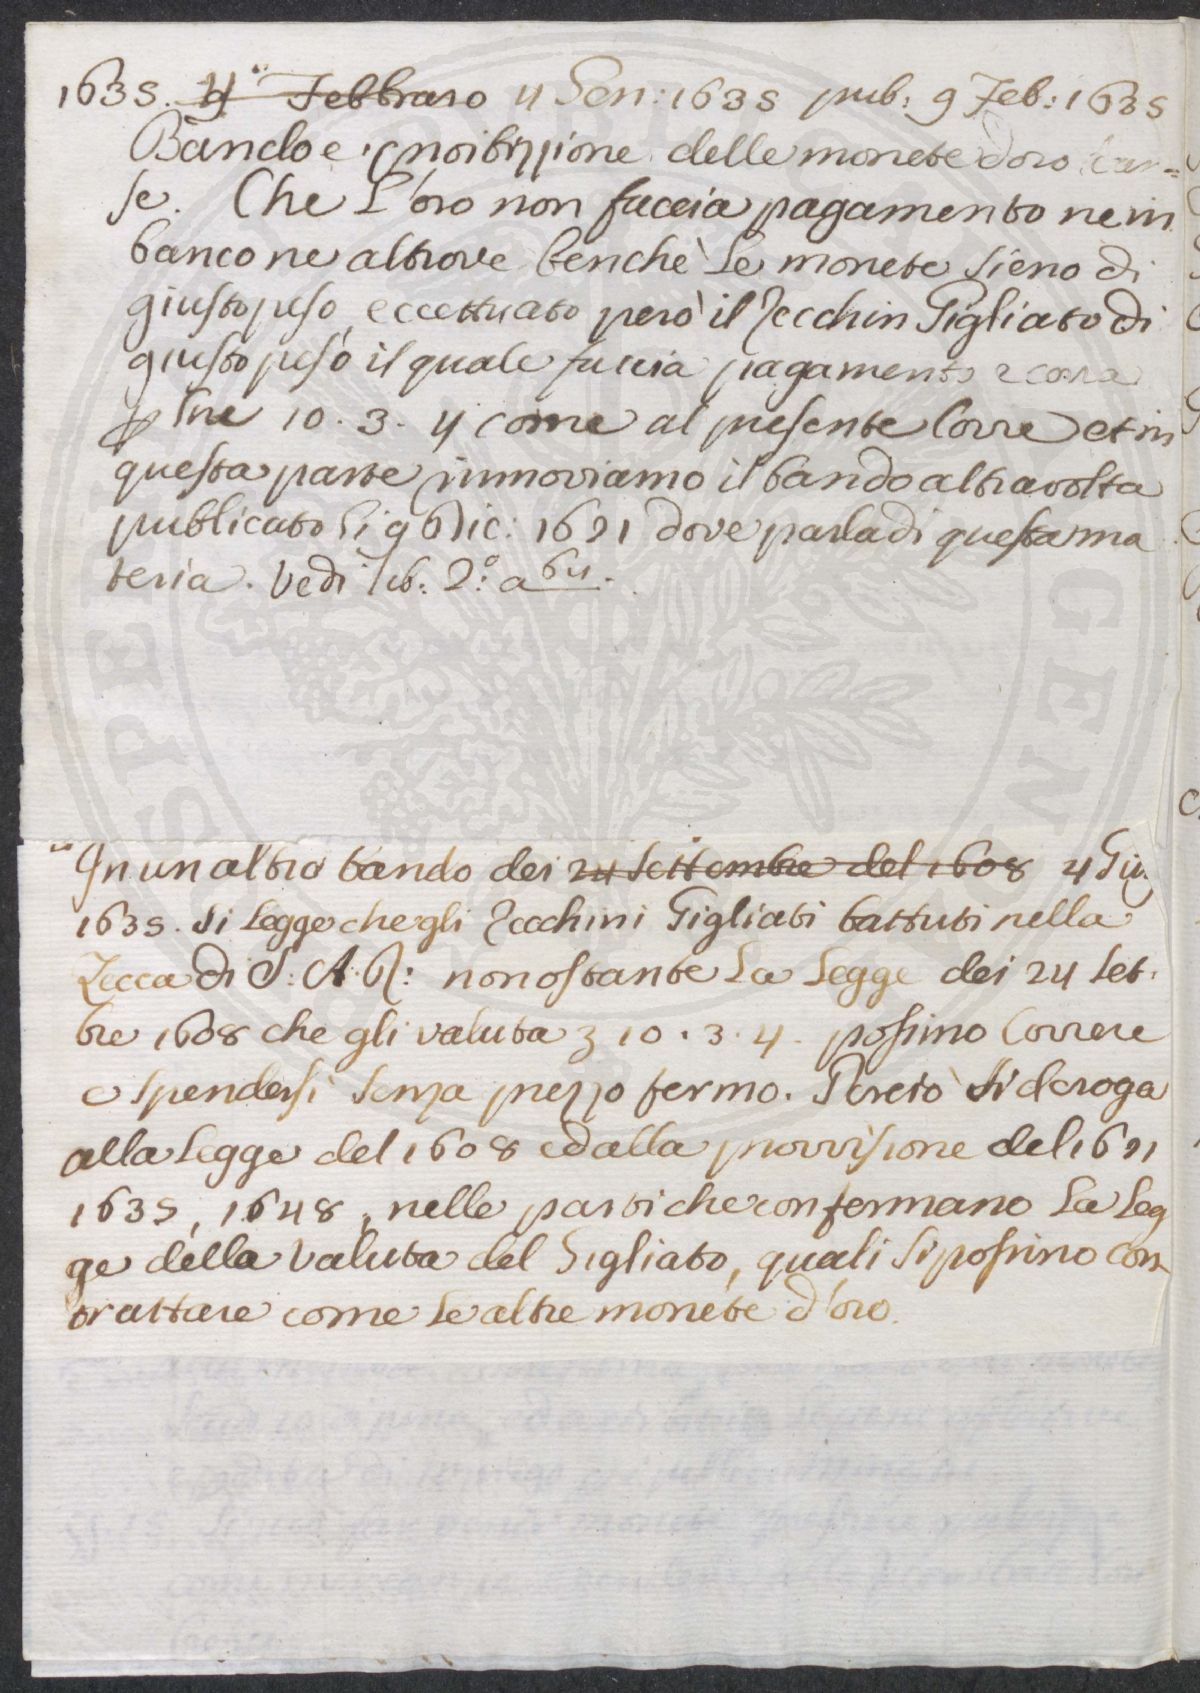 1635. 9 Febbraro 4 Gen: 1635 pub: 9 Feb: 1635
Bando e proibizzione delle monete d'oro scar=
se. Che L'oro non faccia pagamento ne in
banco ne altrove benchè Le monete sieno di
giusto peso, eccettuato però il Zecchin Gigliato di
giusto peso il quale faccia pagamento e corra
p Lire 10. 3. 4 come al presente Corre et in
questa parte innoviamo il bando altra volta
publicato li 9 Dic: 1621 dove parla di questa ma
teria. Vedi lib: 2.° a 64.
In un altro bando dei 24 Settembre del 1608 4 Giu.
1635. si Legge che gli Zecchini Gigliati battuti nella
Zecca di S: A: R: non ostante La Legge dei 24 Set.
bre 1608 che gli valuta 10. 3. 4. possino Correre
e spendersi senza prezzo fermo. Perciò si deroga
alla Legge del 1608 ed alla provvisione del 1621
1635, 1648, nelle parti che confermano La Leg
ge della Valuta del Gigliato, quali si possino con
trattare come Le altre monete d'oro.